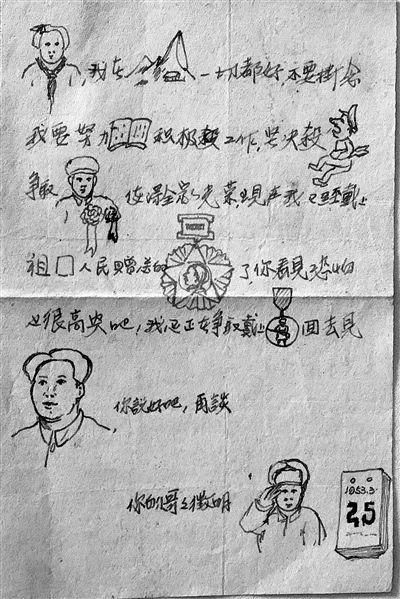 ,我在一切都好,不要掛念
我要努力积极工作,坚决殺
争取使得全家光荣現在我已经戴上
祖囗人民赠送的了,你看見恐怕
也很高兴吧,我还正在争取戴上回去見
你説好吧,再談
你的哥々徵明
1953.3.
25